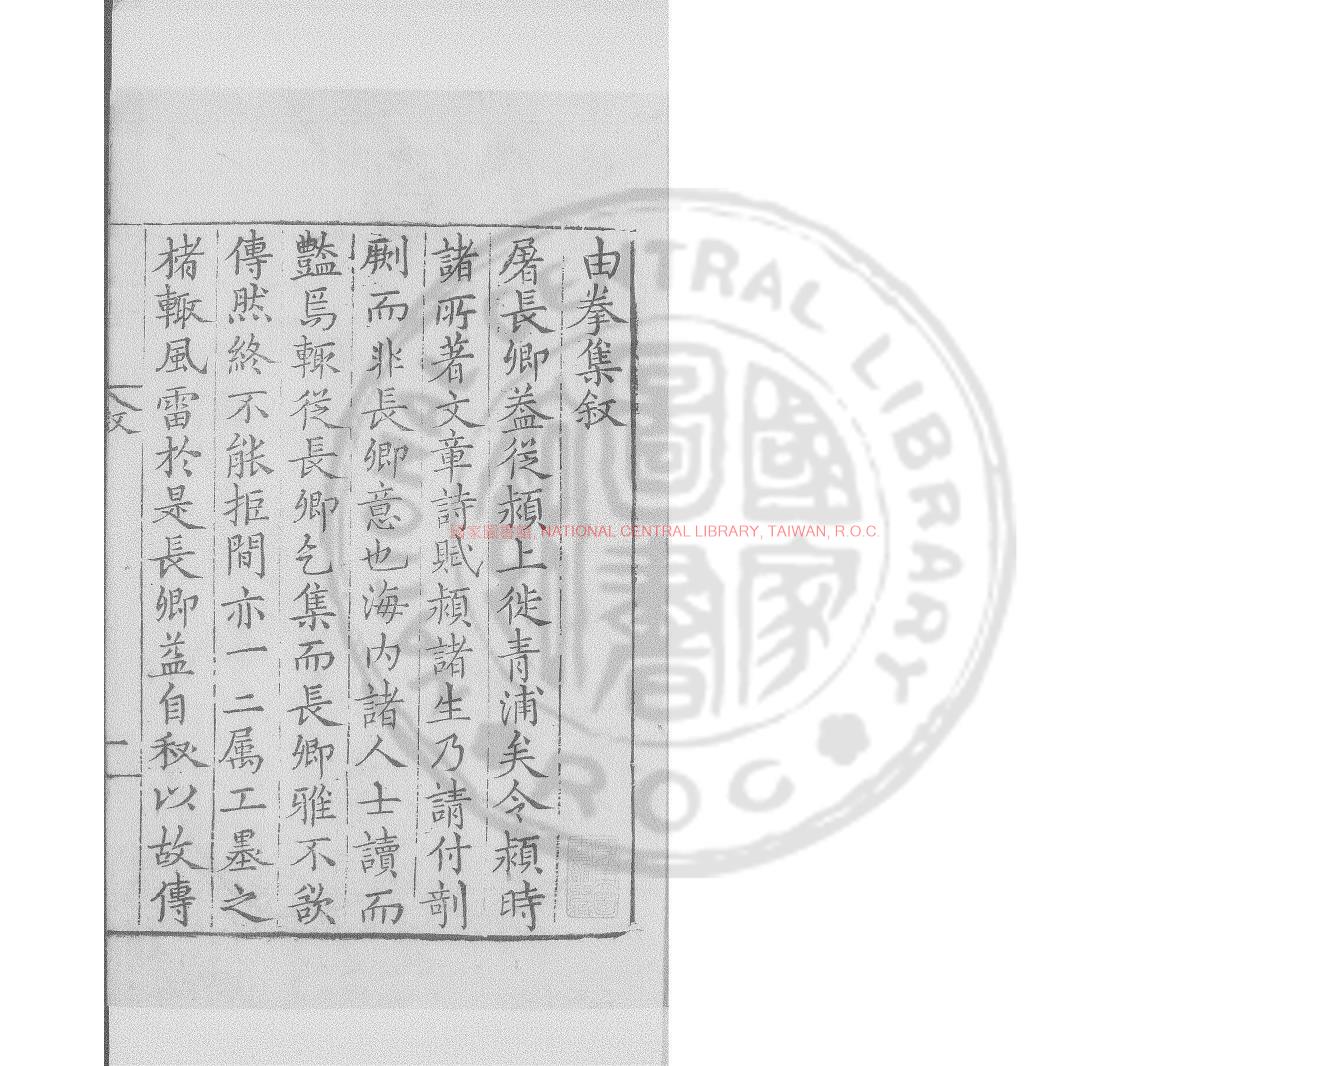 由拳集叙
屠長卿葢從潁上徙青浦矣令潁時
諸所著文章詩賦潁諸生乃請付剞
劂而非長卿意也海内諸人士讀而
豔焉輒從長卿乞集而長卿雅不欲
傳然終不能拒間亦一二属工墨之
楮輒風雷於是長卿益自秘以故傳
叙
一
國家圖書館, NATIONAL CENTRAL LIBRARY, TAIWAN, R.O.C.
CENTRAL LIBRARY
R.O.C
國家圖書